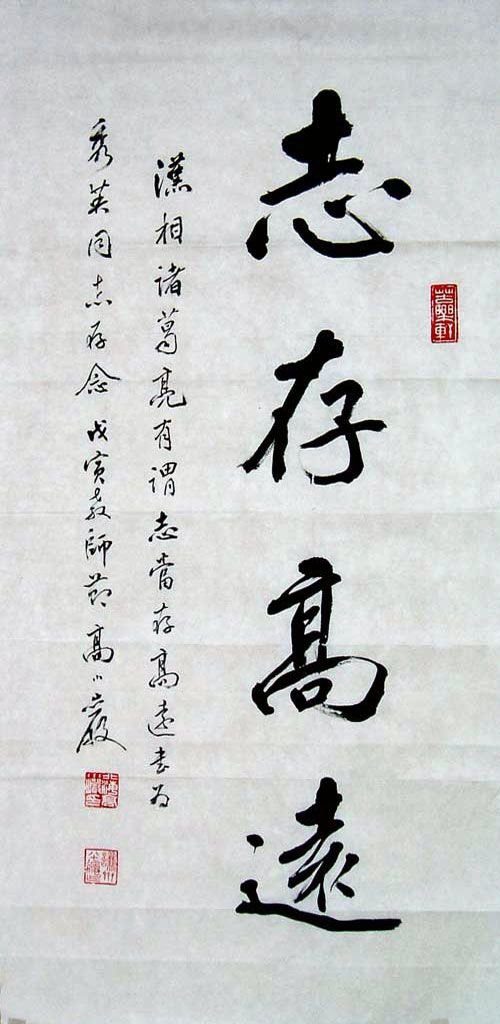 志存高遠
漢相諸葛亮有謂志當存高遠書為
秀英同志存念戊寅教師節高小嚴